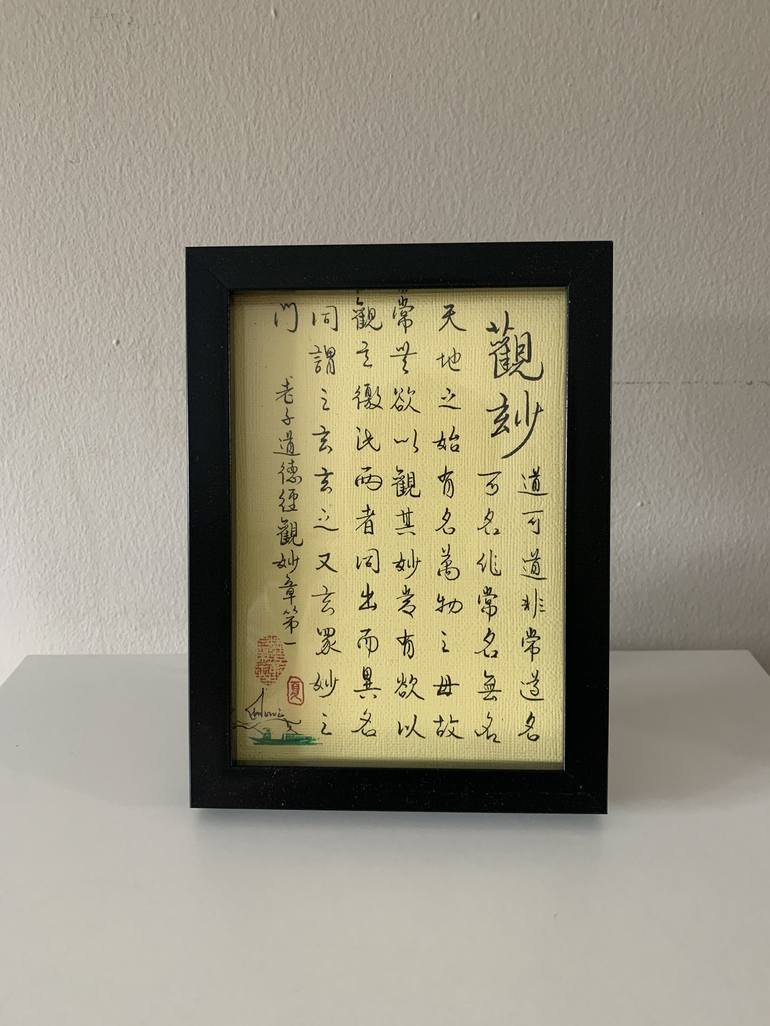 觀玅
道可道非常道名
可名非常名無名
天地之始有名萬物之母故
常無欲以觀其妙常有欲以
觀其徼此兩者同出而異名
同謂之玄玄之又玄眾妙之
門
老子道德經觀妙章第一